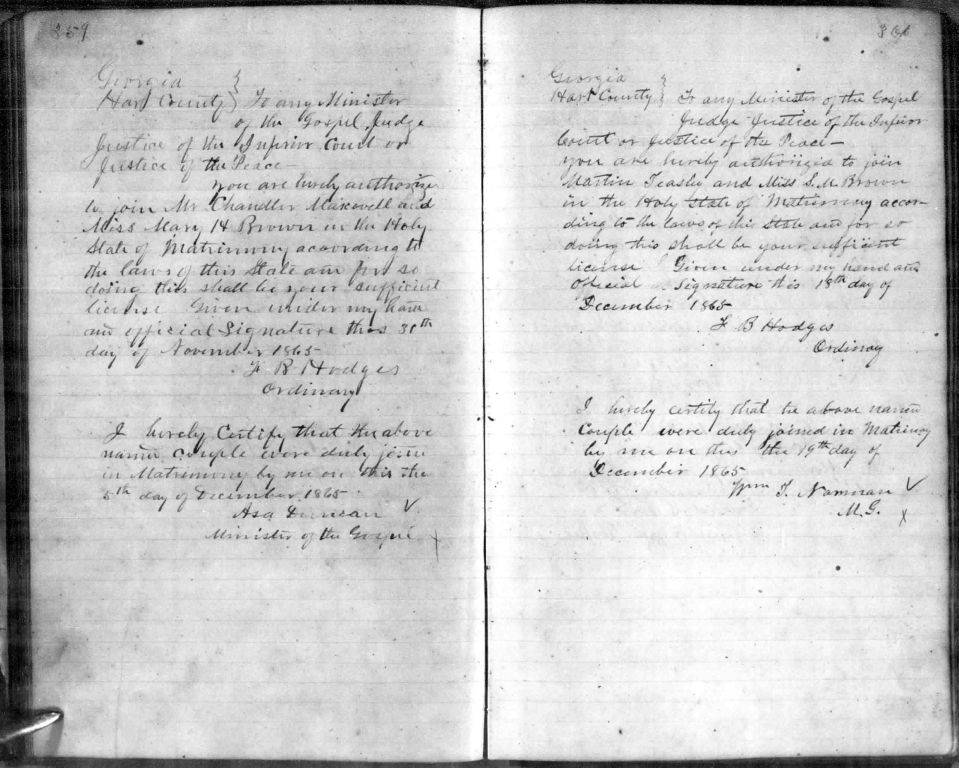 359
Georgia }
Hart County } To any Minister
of the Gospel, Judge
Justice of the Inferior Court or
Justice of the Peace —
you are hereby authorize
to join Mr Chandler Maxwell and
Miss Mary H Brown in the Holy
State of Matrimony according to
the laws of this State and for so
doing this shall be your sufficient
license Given under my hand
and official Signature this 30th
day of November 1865
F B Hodges
Ordinary
I hereby Certify that the above
name couple were duly join
in Matrimony by me on this the
5th day of December 1865
Asa Duncan
Minister of the Gospel
Georgia }
Hart County } To any Minister of the Gospel
Judge Justice of the Inferior
Court or Justice of the Peace —
you are hereby authorized to join
Martin Teasley and Miss S. M. Brown
in the Holy State of Matrimony accor-
ding to the laws of this State and for so
doing this shall be your sufficient
license Given under my hand and
official Signature this 18th day of
December 1865
F B Hodges
Ordinary
I hereby certify that the above name
couple were duly joined in Matrimony
by me on this the 19th day of
December 1865
Wm T. Norman
M. G.